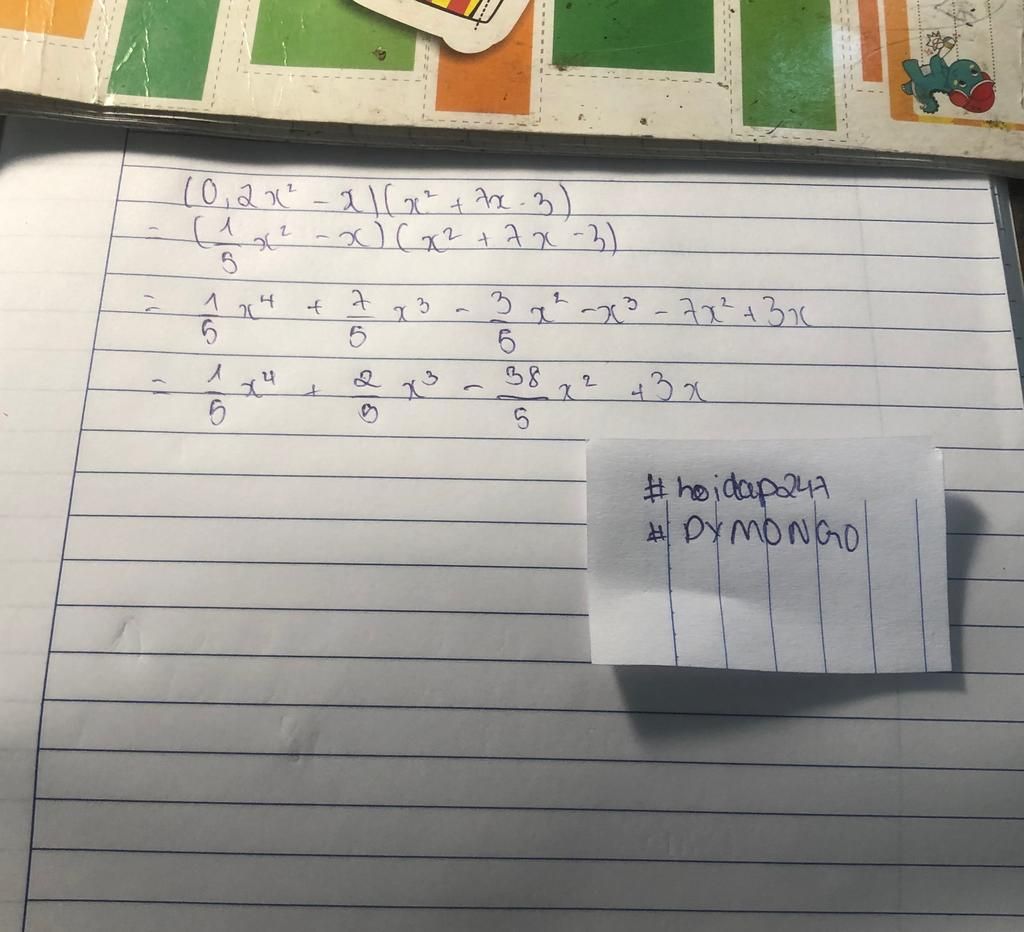 (0,2x² - x)(x² + 7x - 3)
= (1/5 x² - x)(x² + 7x - 3)
= 1/5 x⁴ + 7/5 x³ - 3/5 x² - x³ - 7x² + 3x
= 1/5 x⁴ + 2/5 x³ - 38/5 x² + 3x
#hoidap247
# DYMONGO